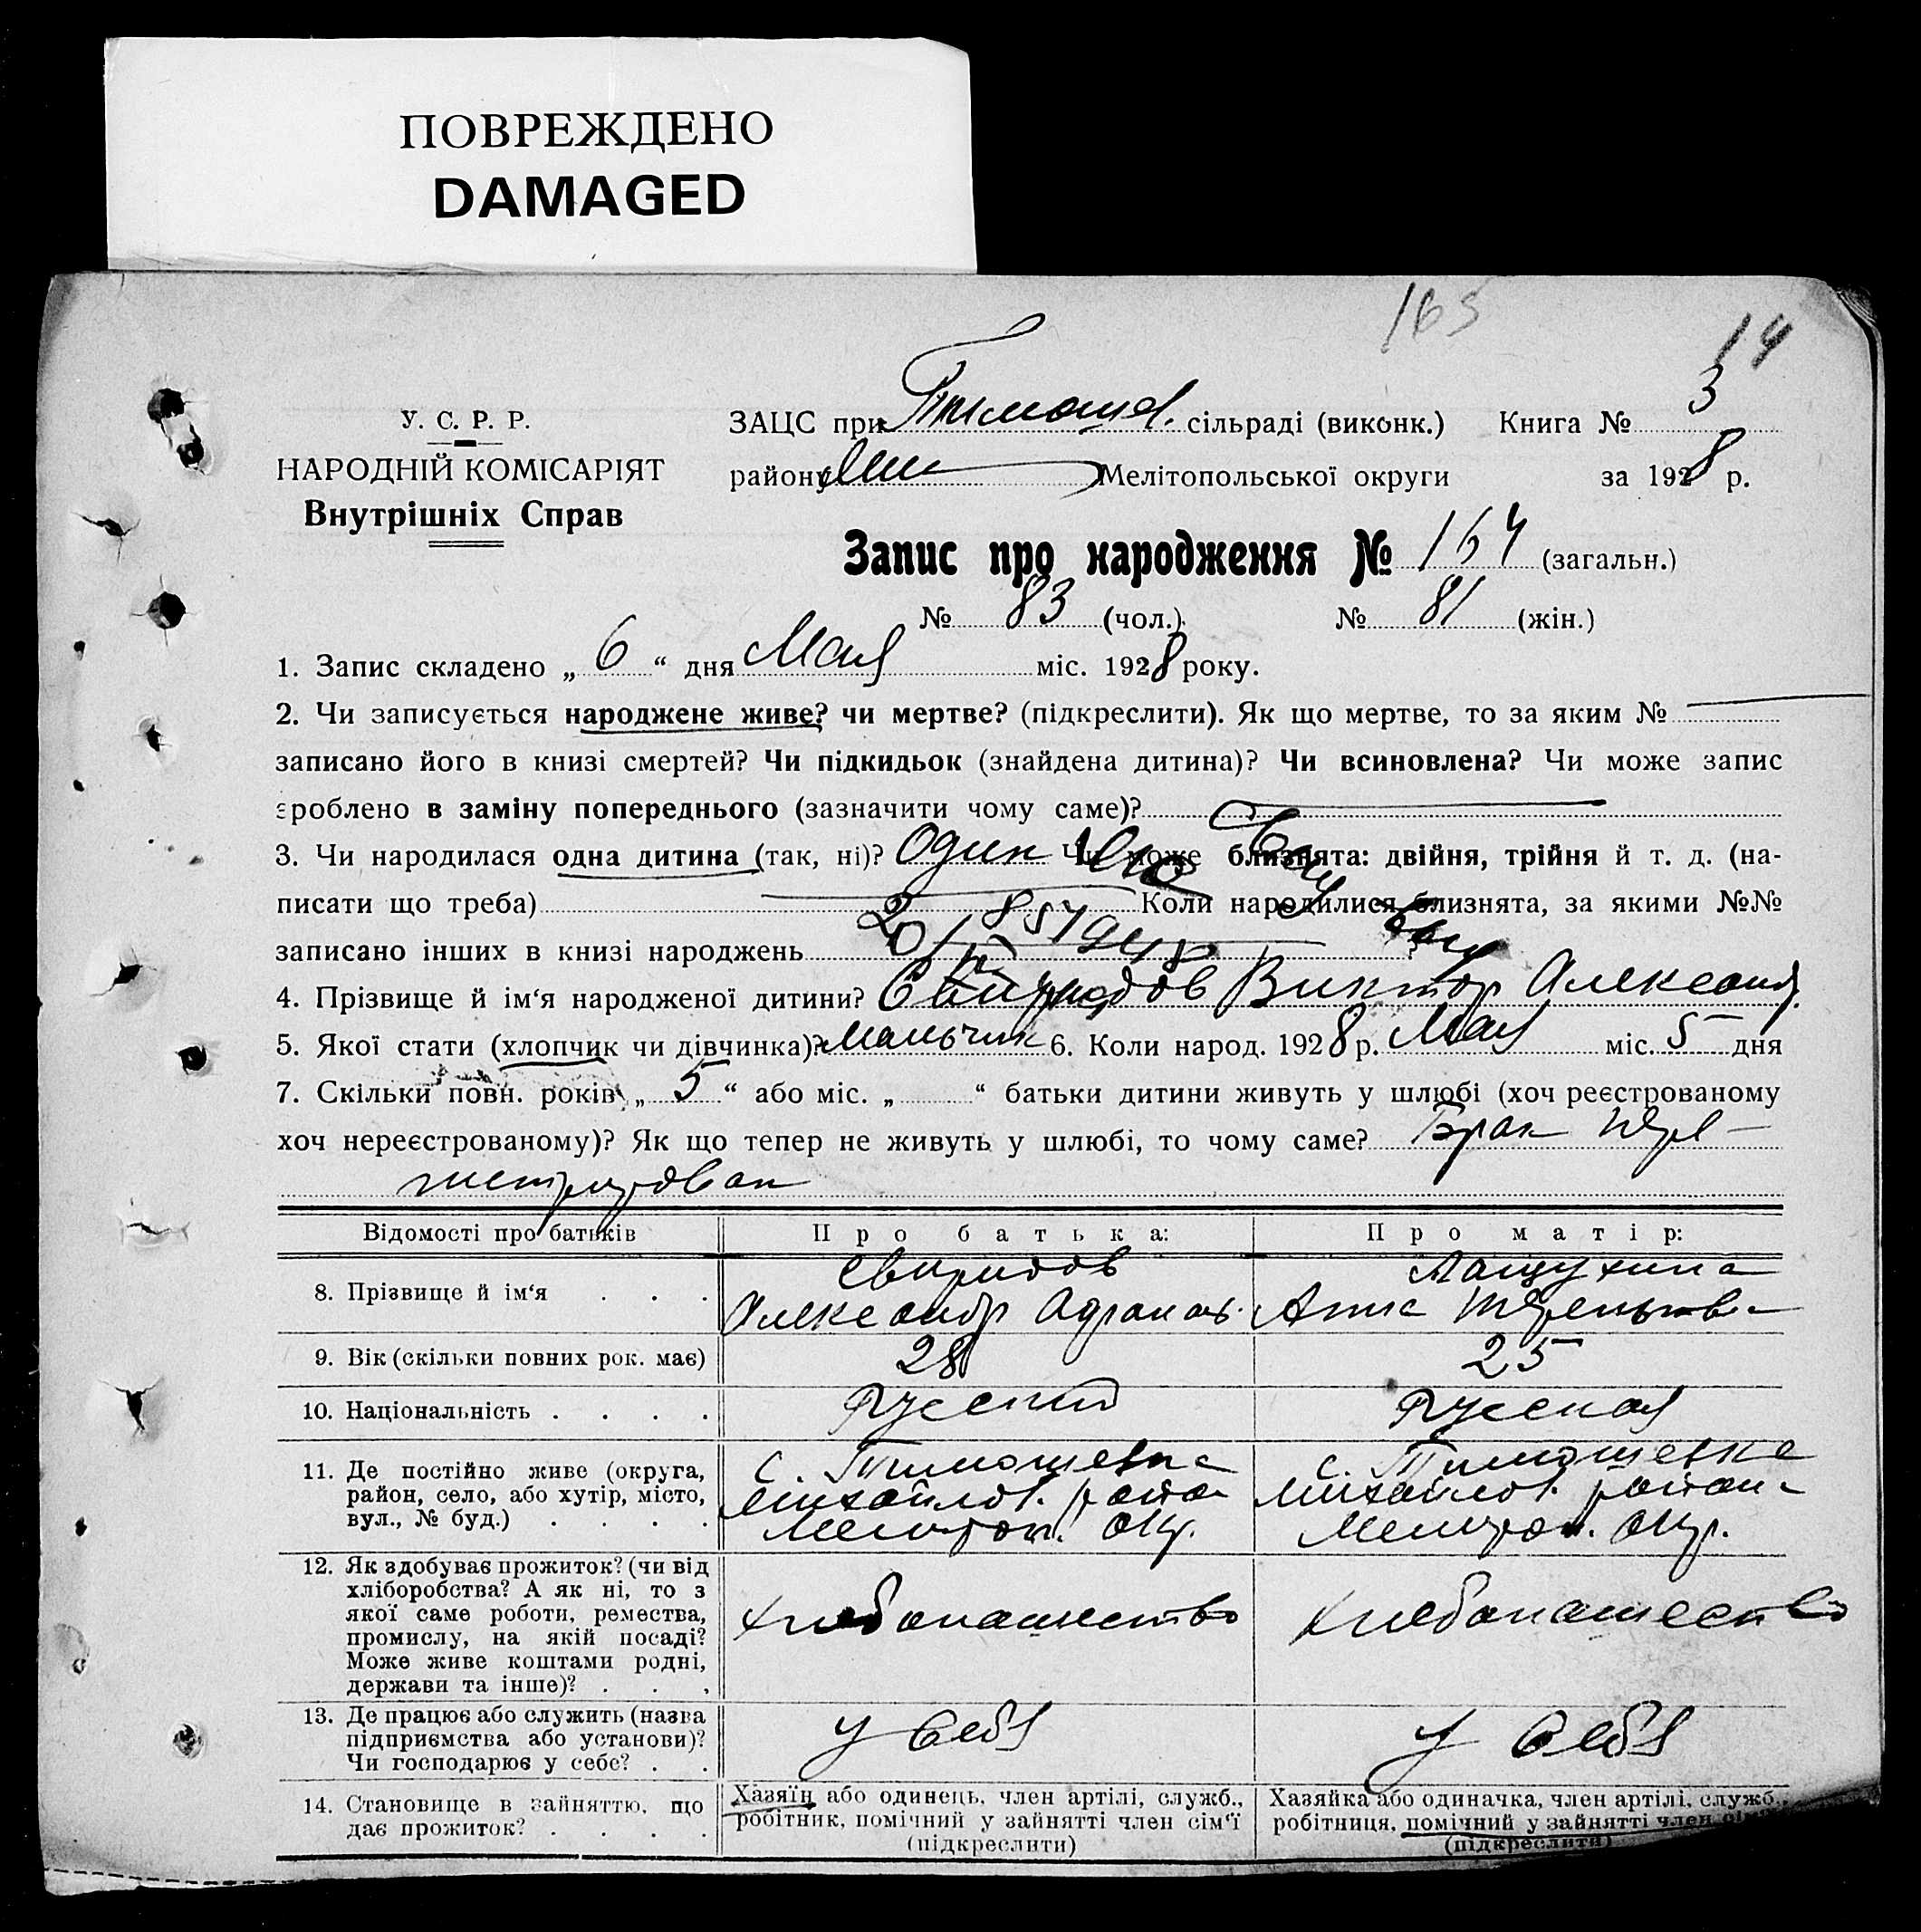 ПОВРЕЖДЕНО
DAMAGED
165
14
У. С. Р. Р.
НАРОДНІЙ КОМІСАРІЯТ
Внутрішніх Справ
ЗАЦС при Тимошев. сільраді (виконк.) Книга № 3
району Мелітопольської округи за 1928 р.
Запис про народження № 164 (загальн.)
№ 83 (чол.) № 81 (жін.)
1. Запис складено „ 6 “ дня Мая міс. 1928 року.
2. Чи записується народжене живе? чи мертве? (підкреслити). Як що мертве, то за яким №
записано його в книзі смертей? Чи підкидьок (знайдена дитина)? Чи всиновлена? Чи може запис
зроблено в заміну попереднього (зазначити чому саме)?
3. Чи народилася одна дитина (так, ні)? Один Чи може близнята: двійня, трійня й т. д. (на-
писати що треба) Коли народилися близнята, за якими №№
записано інших в книзі народжень
4. Прізвище й ім‘я народженої дитини? Свиридов Виктор Александ.
5. Якої стати (хлопчик чи дівчинка)? Мальчик 6. Коли народ. 1928 р. Мая міс. 5 дня
7. Скільки повн. років „ 5 “ або міс. „ “ батьки дитини живуть у шлюбі (хоч реєстрованому
хоч нереєстрованому)? Як що тепер не живуть у шлюбі, то чому саме? Брак
Відомості про батьків Про батька: Про матір:
8. Прізвище й ім‘я . . . Свиридов Александр Анна
9. Вік (скільки повних рок. має) 28 25
10. Національність . . . . Русский Русская
11. Де постійно живе (округа, с. Тимошевка с. Тимошевка
район, село, або хутір, місто, Михайлов. района Михайлов. района
вул., № буд.) . . . . Мелитоп. окр. Мелитоп. окр.
12. Як здобуває прожиток? (чи від
хліборобства? А як ні, то з
якої саме роботи, ремества, хлебопашество хлебопашество
промислу, на якій посаді?
Може живе коштами родні,
держави та інше)? . . .
13. Де працює або служить (назва
підприємства або установи)? у себя у себя
Чи господарює у себе? . .
14. Становище в зайняттю, що
дає прожиток? . . . .
Хазяїн або одинець, член артілі, служб.,
робітник, помічний у зайнятті член сім‘ї
(підкреслити)
Хазяйка або одиначка, член артілі, служб.,
робітниця, помічний у зайнятті член
(підкреслити)